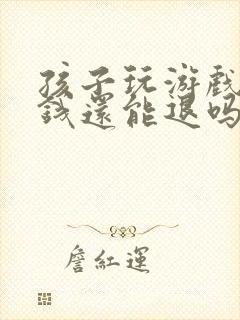 孩子玩游戲
錢還能退吗
詹紅運